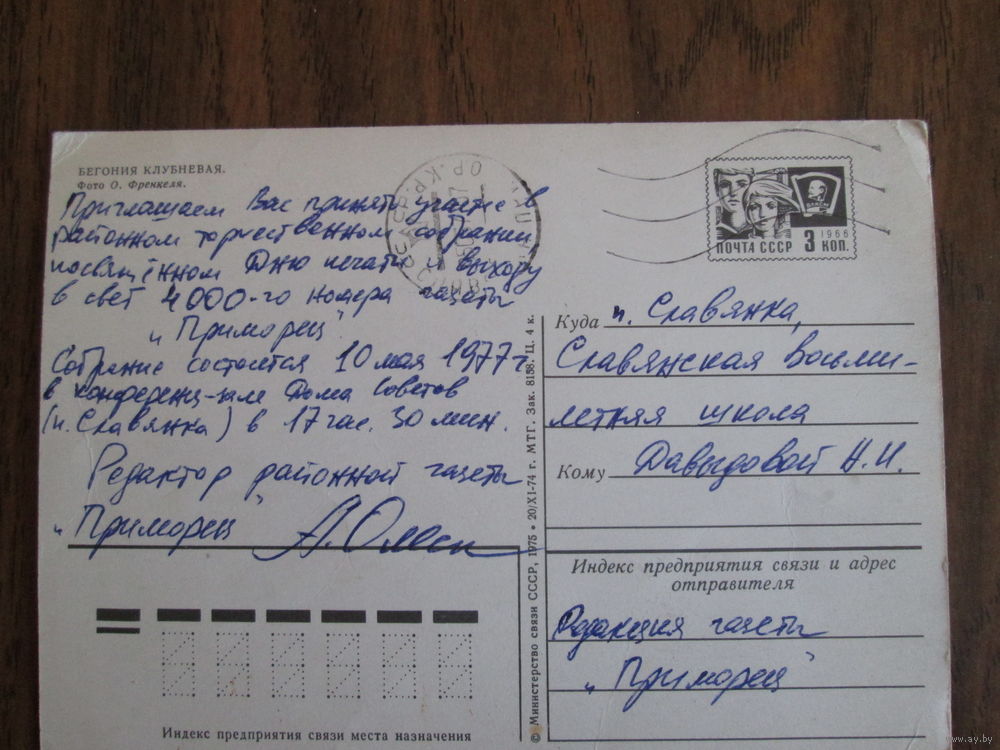 БЕГОНИЯ КЛУБНЕВАЯ.
Фото О. Френкеля.
Приглашаем Вас принять участие в
районном торжественном собрании,
посвящённом Дню печати и выходу
в свет 4000-го номера газеты
„Приморец"
Собрание состоится 10 мая 1977 г.
в конференц-зале Дома Советов
(п. Славянка) в 17 час. 30 мин.
Редактор районной газеты
„Приморец"
ПОЧТА СССР 3 КОП.
1966
ВЛКСМ
Куда п. Славянка,
Славянская восьми-
летняя школа
Кому Давыдовой Н.И.
Индекс предприятия связи и адрес
отправителя
Редакция газеты
„Приморец"
Индекс предприятия связи места назначения
© Министерство связи СССР, 1975 • 20/XI-74 г. МТГ. Зак. 8158. Ц. 4 к.
www.ay.by